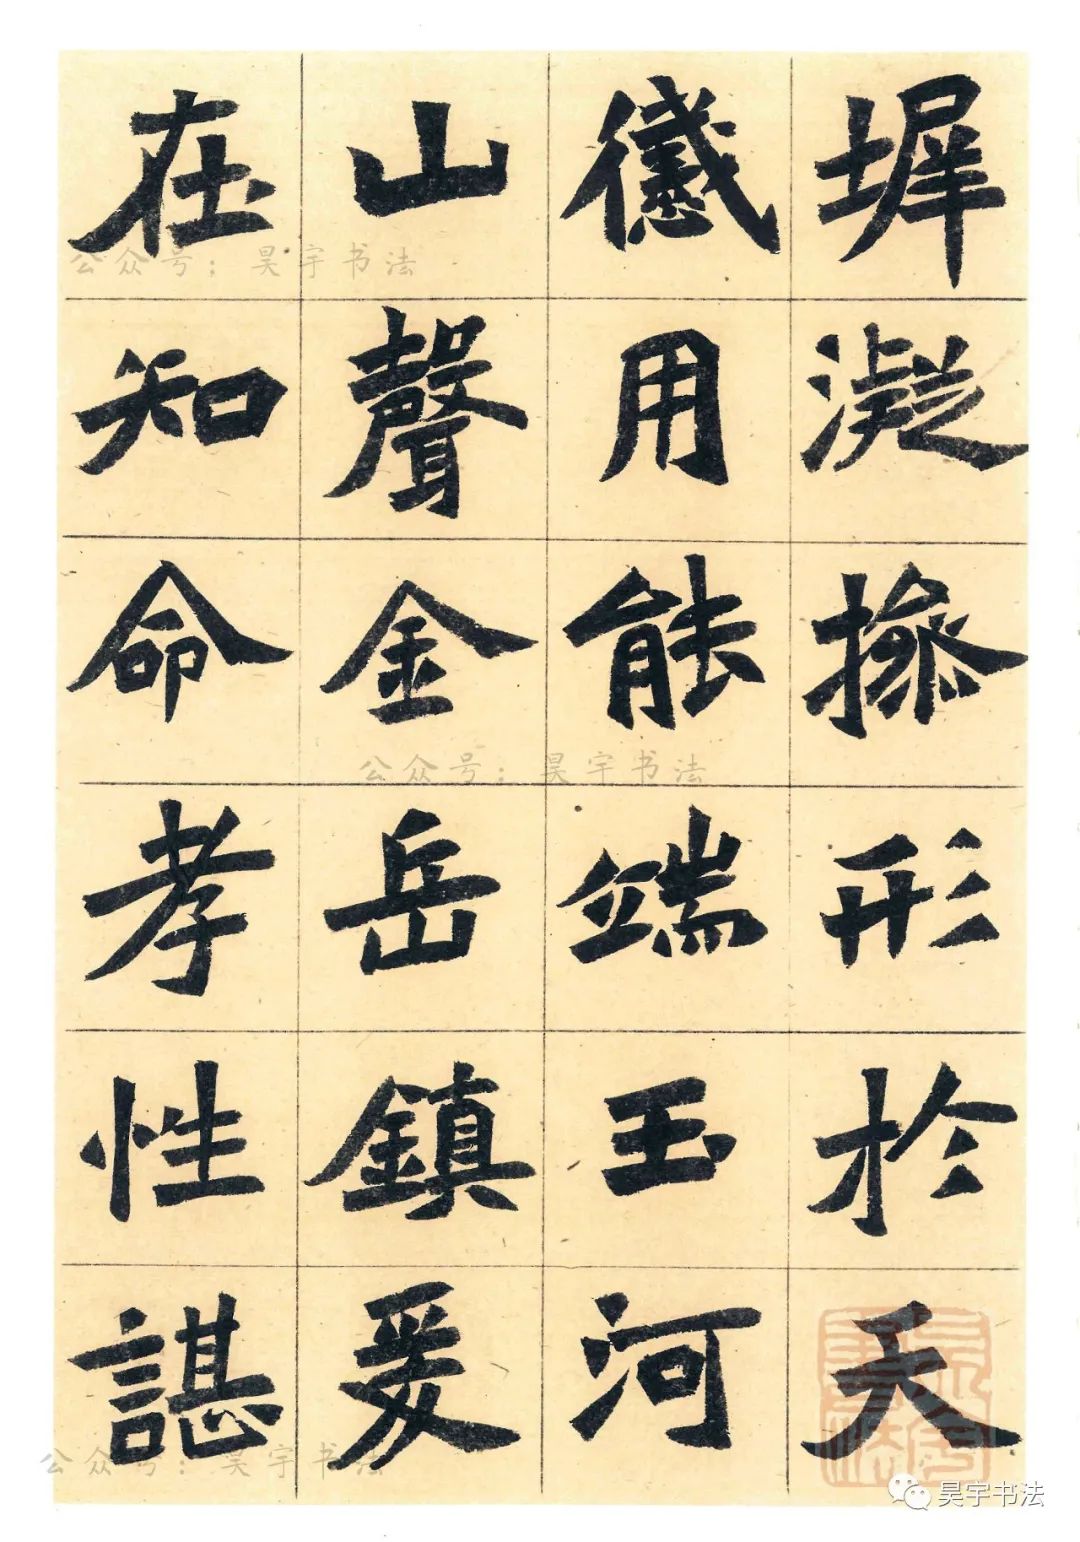 墀凝操形於天
用能端玉河
山聲金岳鎮爰
在知命孝性諶
公众号：昊宇书法
公众号：昊宇书法
公众号：昊宇书法
昊宇书法
昊宇书法